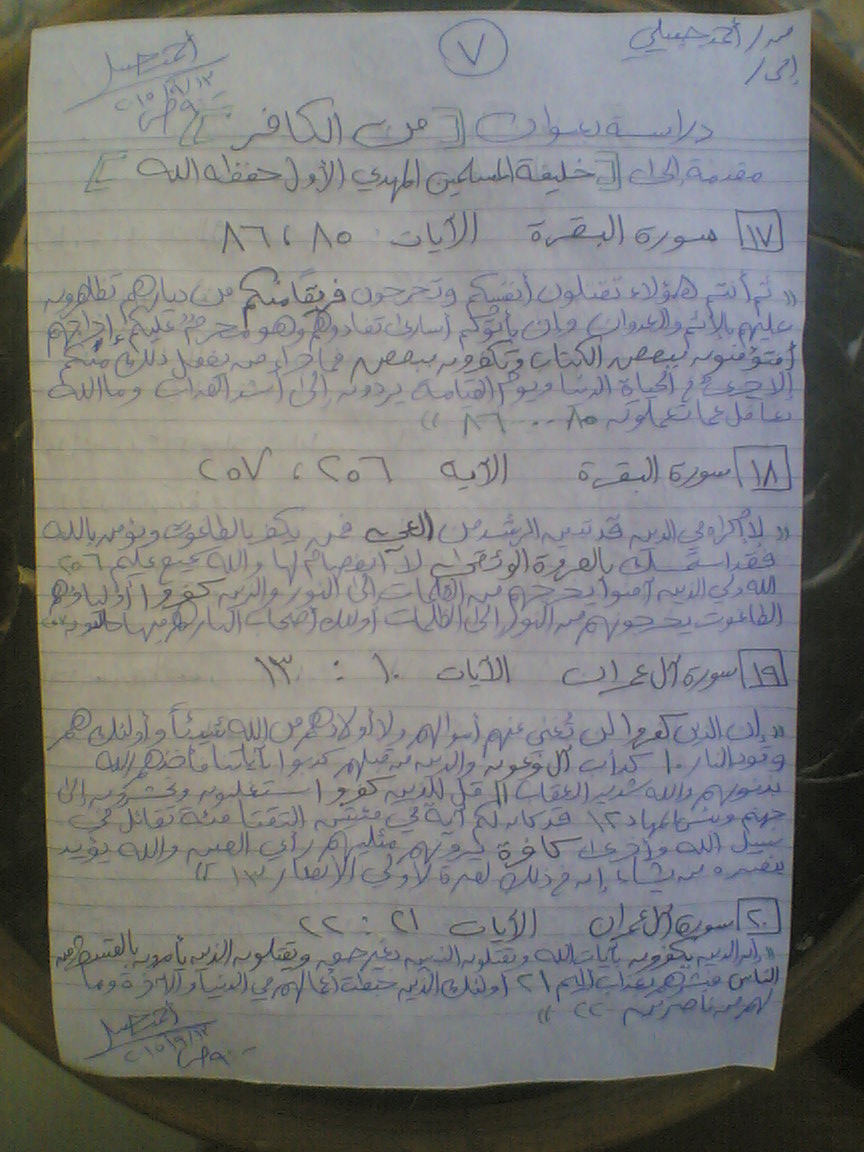 من / أحمد جبيلي
إلى /
٧
دراسة بعنوان [ من الكافر ]
مقدمة إلى [ خليفة المسلمين المهدي الأول حفظه الله ]
١٧ سورة البقرة الآيات ٨٥ ، ٨٦
« ثم أنتم هؤلاء تقتلون أنفسكم وتخرجون فريقا منكم من ديارهم تظاهرون
عليهم بالإثم والعدوان وإن يأتوكم أسارى تفادوهم وهو محرم عليكم إخراجهم
أفتؤمنون ببعض الكتاب وتكفرون ببعض فما جزاء من يفعل ذلك منكم
إلا خزي في الحياة الدنيا ويوم القيامة يردون إلى أشد العذاب وما الله
بغافل عما تعملون ٨٥ ... ٨٦ »
١٨ سورة البقرة الآية ٢٥٦ ، ٢٥٧
« لا إكراه في الدين قد تبين الرشد من الغي فمن يكفر بالطاغوت ويؤمن بالله
فقد استمسك بالعروة الوثقى لا انفصام لها والله سميع عليم ٢٥٦
الله ولي الذين آمنوا يخرجهم من الظلمات إلى النور والذين كفروا أولياؤهم
الطاغوت يخرجونهم من النور إلى الظلمات أولئك أصحاب النار هم فيها خالدون
١٩ سورة آل عمران الآيات ١٠ : ١٣
« إن الذين كفروا لن تغني عنهم أموالهم ولا أولادهم من الله شيئاً وأولئك هم
وقود النار ١٠ كدأب آل فرعون والذين من قبلهم كذبوا بآياتنا فأخذهم الله
بذنوبهم والله شديد العقاب ١١ قل للذين كفروا ستغلبون وتحشرون إلى
جهنم وبئس المهاد ١٢ قد كان لكم آية في فئتين التقتا فئة تقاتل في
سبيل الله وأخرى كافرة يرونهم مثليهم رأي العين والله يؤيد
بنصره من يشاء إن في ذلك لعبرة لأولي الأبصار ١٣ »
٢٠ سورة آل عمران الآيات ٢١ : ٢٢
« إن الذين يكفرون بآيات الله ويقتلون النبيين بغير حق ويقتلون الذين يأمرون بالقسط من
الناس فبشرهم بعذاب أليم ٢١ أولئك الذين حبطت أعمالهم في الدنيا والآخرة وما
لهم من ناصرين ٢٢ »